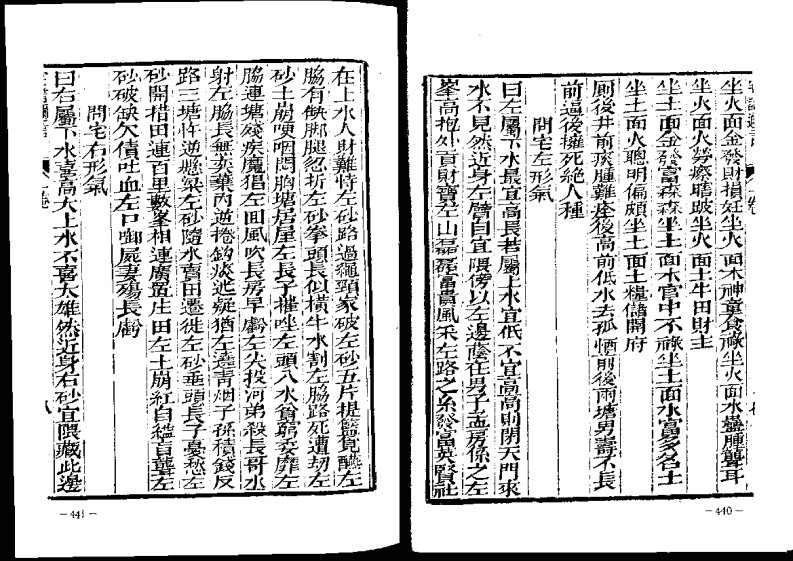 坐火面金發財損妊坐火面木神童食祿坐火面水蠱腫聾耳
坐火面火勞瘵瞎跛坐火面土牛田財主
坐土面金發富森森坐土面木官中不祿坐土面水富多名土
坐土面火聰明偏頗坐土面土糧儲開府
廁後井前痰腫難痊後高前低水去孤恓前後兩塘男壽不長
前逼後擁死絕人種
問宅左形氣
曰左屬下水最宜高長若屬上水宜低不宜高高則閉天門來
水不見然近身左臂自宜隈傍以左邊蔭在男子孟房係之左
峯高抱外百財寶左山磊磊富貴風釆左路之糸發富英賢社
— 440 —
在上水人財難恃左砂路過龜頸家破左砂五片提籃覓醯左
脇有缺脚腿忽折左砂拳頭長似橫牛水割左脇路死遭刧左
砂土崩哽咽悶胸塘居屋左長子摧唑左頭八水貧窮委靡左
脇連塘殘疾魔猖左田風吹長房早虧左尖投河弟殺長哥水
射左脇長無葉內逆捲飲疑猶左遶青烟子孫積錢反
路三塘忤逆懸梁左砂隨水賣田遷徙左砂垂頭長子憂愁左
砂開措田連百里數峯相連廣置庄田左土崩紅自縊盲聾左
砂破缺欠債吐血左口啣屍妻殤長虧
問宅右形氣
曰右屬下水喜高大上水不喜大雄然近身右砂宜隈藏此邊
— 441 —